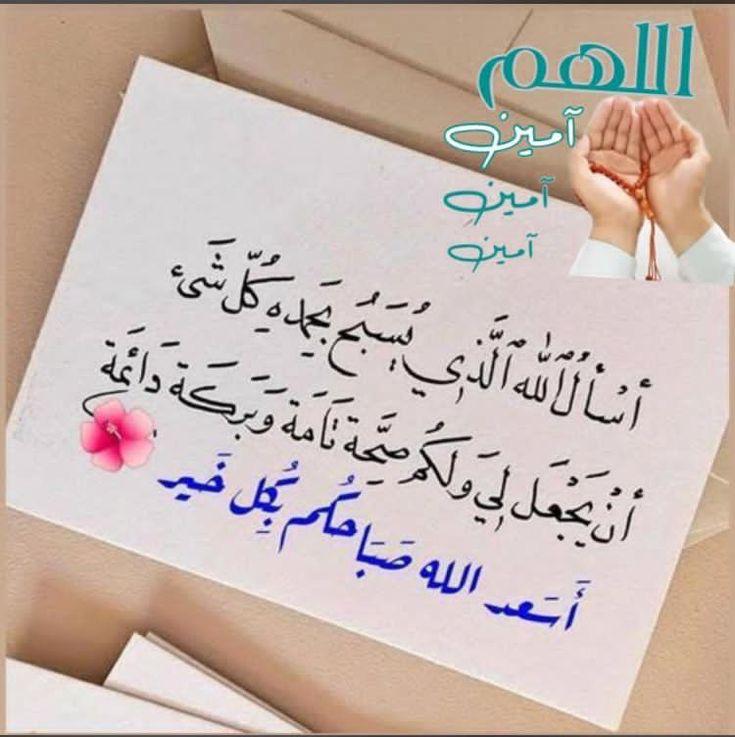 اللهم
آمين
آمين
آمين
أَسْأَلُ اللهَ ٱلَّذِي يُسَبِّحُ بِحَمْدِهِ كُلُّ شَيْءٍ
أَنْ يَجْعَلَ لِي وَلَكُمْ صِحَّةً تَامَةً وَبَرَكَةً دَائِمَةً
أَسعد الله صَبَاحكُم بكُل خَير